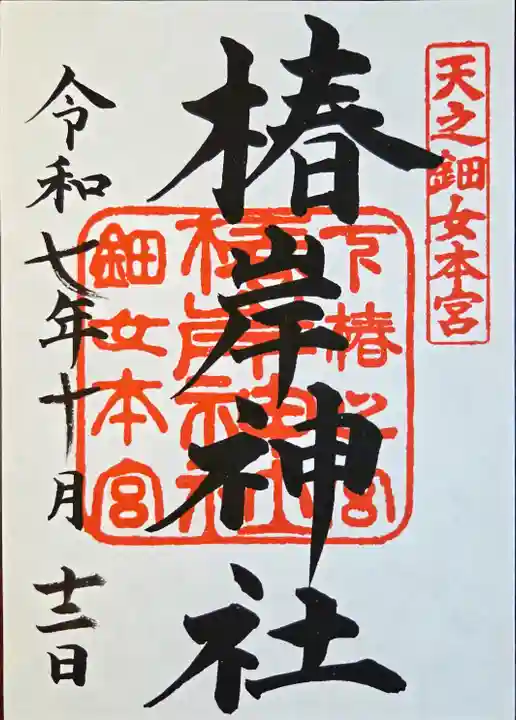 天之鈿女本宮
椿岸神社
下椿之宮
椿岸神社
鈿女本宮
令和七年十月十二日